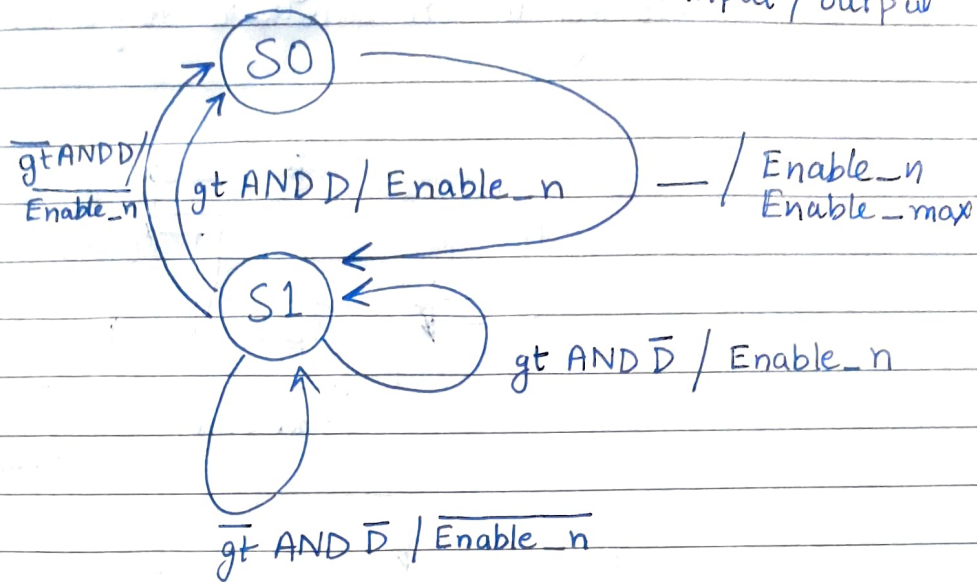 input / output
S0
g̅t̅ AND D /
E̅n̅a̅b̅l̅e̅_̅n̅
gt AND D / Enable_n
— / Enable_n
Enable_max
S1
gt AND D̅ / Enable_n
g̅t̅ AND D̅ / E̅n̅a̅b̅l̅e̅_̅n̅